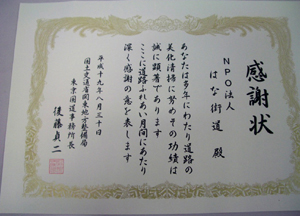 感謝状
NPO法人
はな街道 殿
あなたは多年にわたり道路の
美化清掃に努めその功績は
誠に顕著であります
ここに道路ふれあい月間にあたり
深く感謝の意を表します
平成十九年八月三十日
国土交通省関東地方整備局
東京国道事務所長
後藤貞二